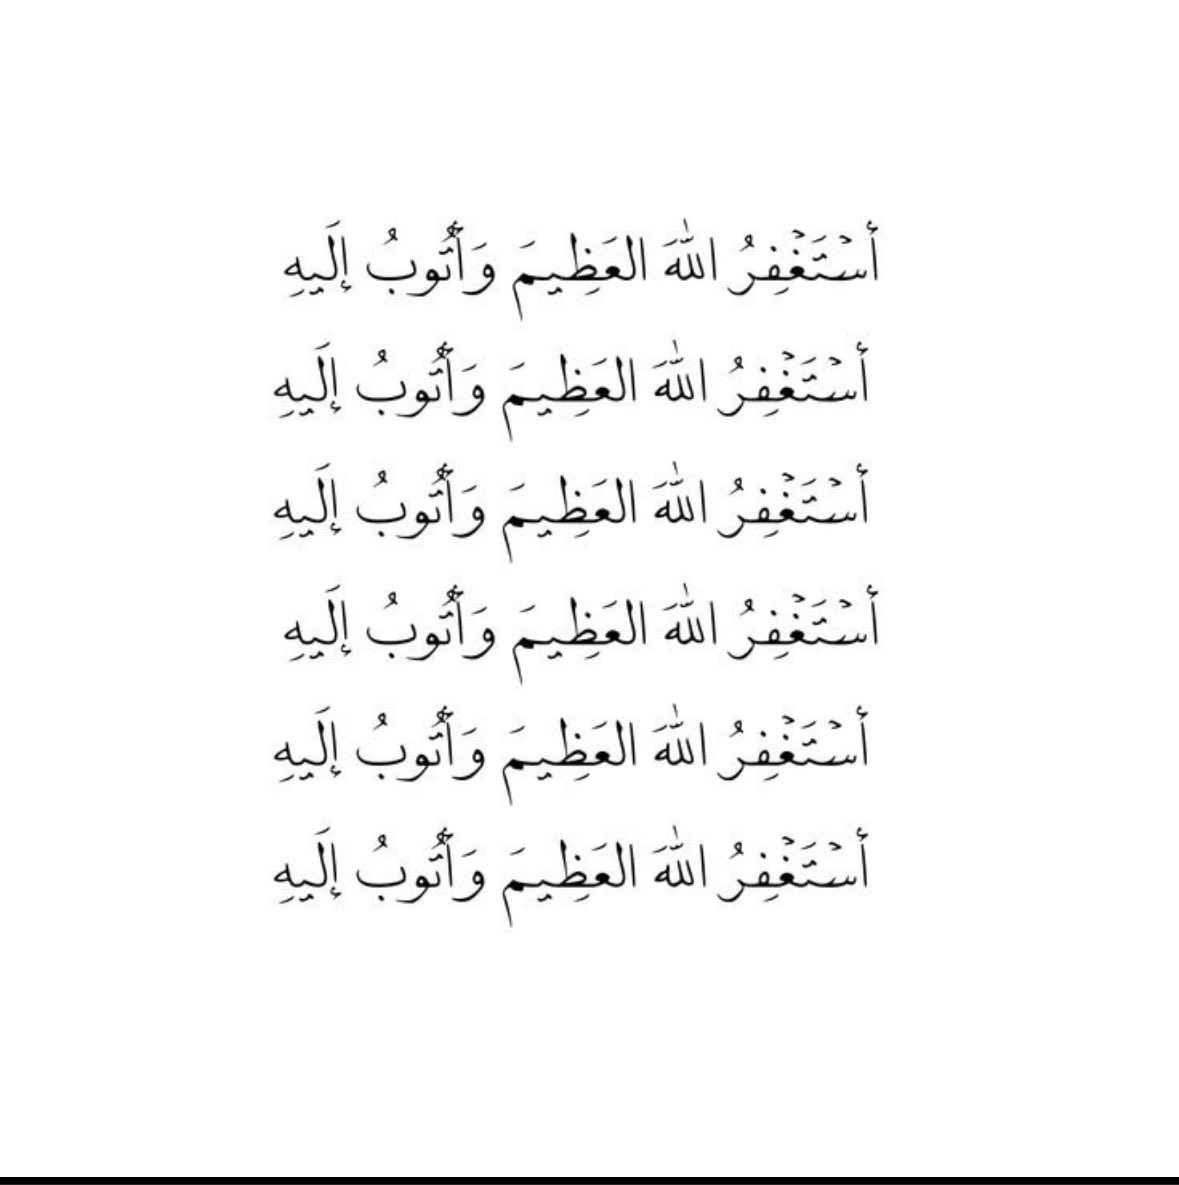 أَسْتَغْفِرُ اللّٰهَ العَظِيمَ وَأَتُوبُ إِلَيهِ
أَسْتَغْفِرُ اللّٰهَ العَظِيمَ وَأَتُوبُ إِلَيهِ
أَسْتَغْفِرُ اللّٰهَ العَظِيمَ وَأَتُوبُ إِلَيهِ
أَسْتَغْفِرُ اللّٰهَ العَظِيمَ وَأَتُوبُ إِلَيهِ
أَسْتَغْفِرُ اللّٰهَ العَظِيمَ وَأَتُوبُ إِلَيهِ
أَسْتَغْفِرُ اللّٰهَ العَظِيمَ وَأَتُوبُ إِلَيهِ